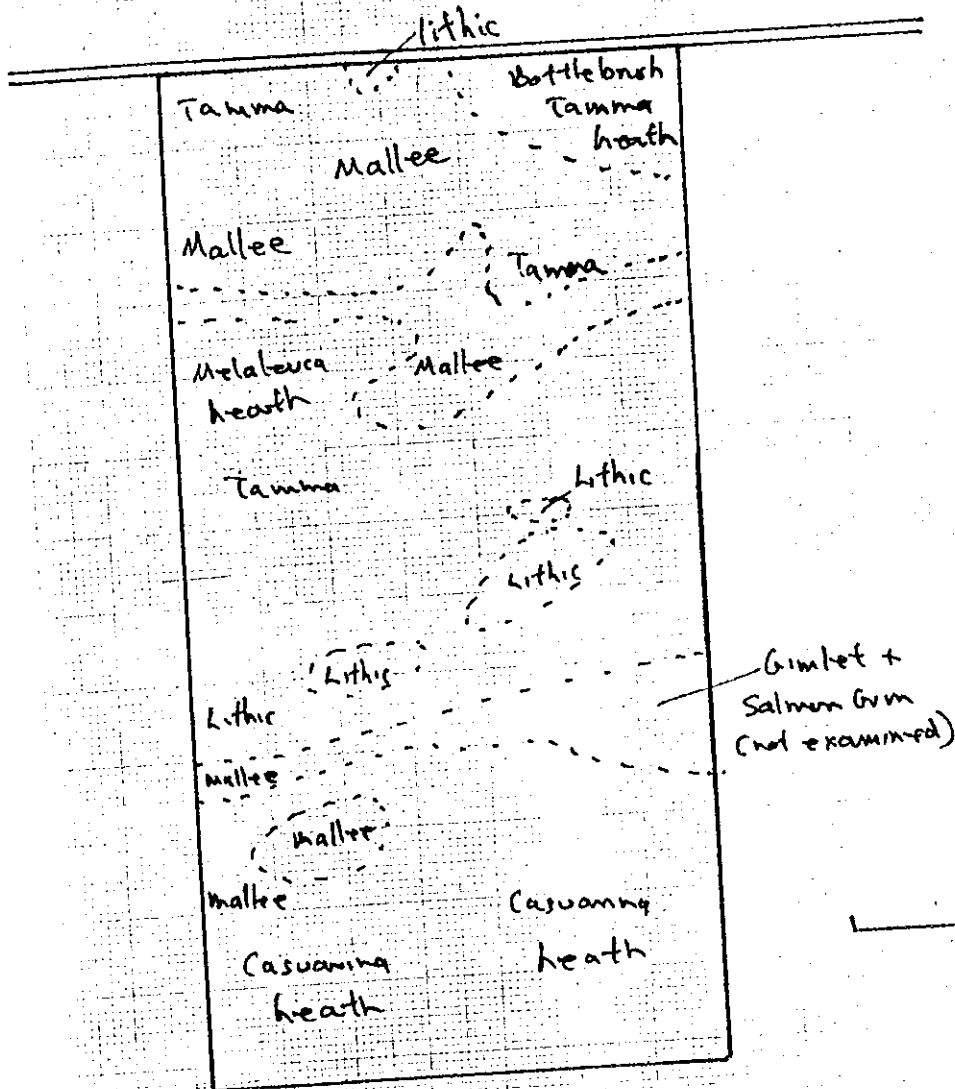 lithic
Tamma
Bottlebrush
Tamma
heath
Mallee
Mallee
Tamma
Melaleuca
heath
Mallee
Tamma
Lithic
Lithic
Lithic
Lithic
Gimlet +
Salmon Gum
(not examined)
mallee
mallee
mallee
Casuarina
heath
Casuarina
heath